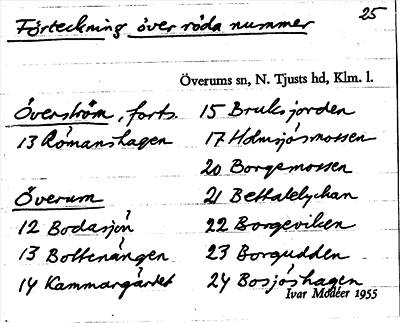 Förteckning över röda nummer
25
Överums sn, N. Tjusts hd, Klm. l.
Överström, forts.
13 Römanshagen
Överum
12 Bodasjön
13 Bottenängen
14 Kammargärdet
15 Bruksjorden
17 Holmsjömossen
20 Borgemossen
21 Bettalelyckan
22 Borgeviken
23 Borgudden
24 Bosjöshagen
Ivar Modéer 1955